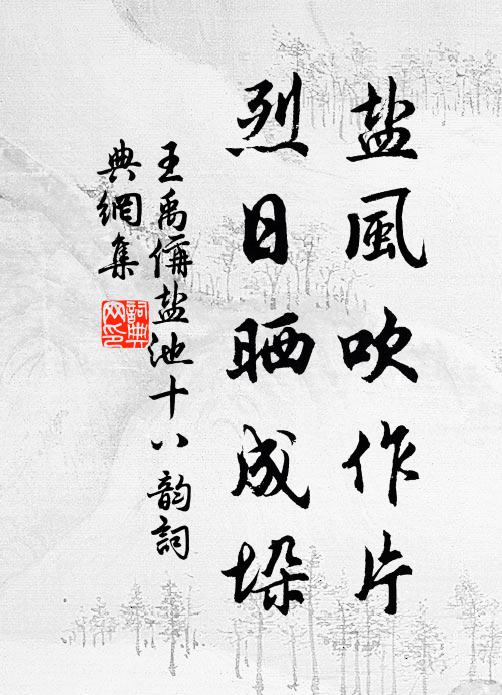 盐風吹作片
烈日晒成垛
王禹偁盐池十八韵詞
典網集
詞典
网印